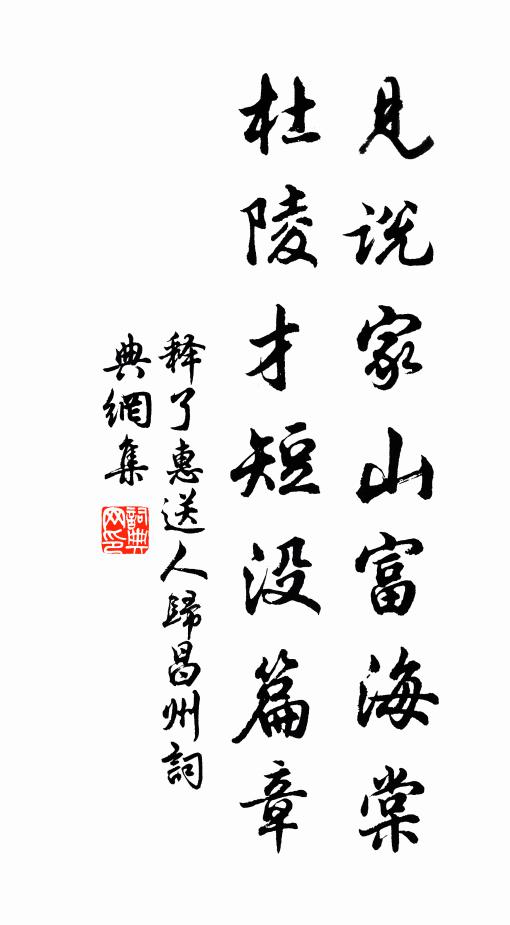 見説家山富海棠
杜陵才短没篇章
释了惠送人歸昌州詞
典網集
詞典網印